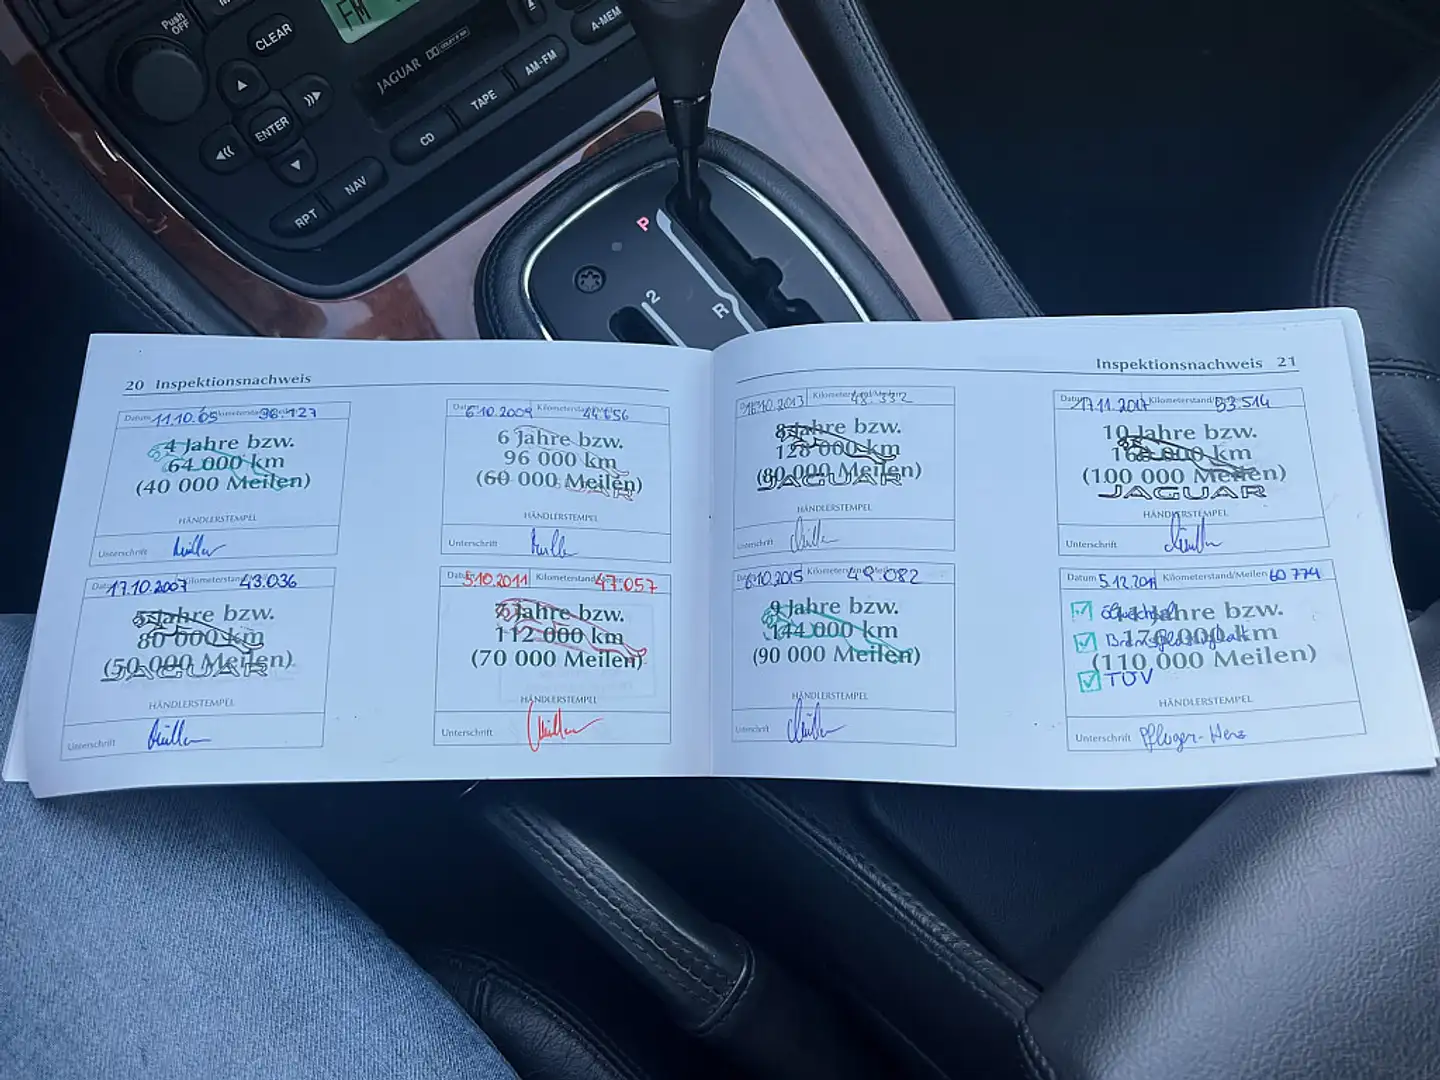 Push
OFF
CLEAR
FM
JAGUAR
A-MEM
AM-FM
TAPE
CD
ENTER
NAV
RPT
P
R
2
20 Inspektionsnachweis
Datum 11.10.05 Kilometerstand
4 Jahre bzw.
64 000 km
(40 000 Meilen)
HÄNDLERSTEMPEL
Unterschrift Müller
6.10.2009 Kilometerstand
6 Jahre bzw.
96 000 km
(60 000 Meilen)
HÄNDLERSTEMPEL
Unterschrift
17.10.2007 43.036
5 Jahre bzw.
80 000 km
(50 000 Meilen)
JAGUAR
HÄNDLERSTEMPEL
Unterschrift Müller
5.10.2011 Kilometerstand 47.057
7 Jahre bzw.
112 000 km
(70 000 Meilen)
HÄNDLERSTEMPEL
Unterschrift Müller
Inspektionsnachweis 21
10.2013 Kilometerstand/Meilen 48.332
8 Jahre bzw.
128 000 km
(80 000 Meilen)
JAGUAR
HÄNDLERSTEMPEL
Unterschrift
17.11.2017 Kilometerstand/Meilen 53.514
10 Jahre bzw.
160 000 km
(100 000 Meilen)
JAGUAR
HÄNDLERSTEMPEL
Unterschrift
6.10.2015 49.082
9 Jahre bzw.
144 000 km
(90 000 Meilen)
HÄNDLERSTEMPEL
Unterschrift
Datum Kilometerstand/Meilen 60 774
Ölwechsel
11 Jahre bzw.
176 000 km
(110 000 Meilen)
TÜV
HÄNDLERSTEMPEL
Unterschrift